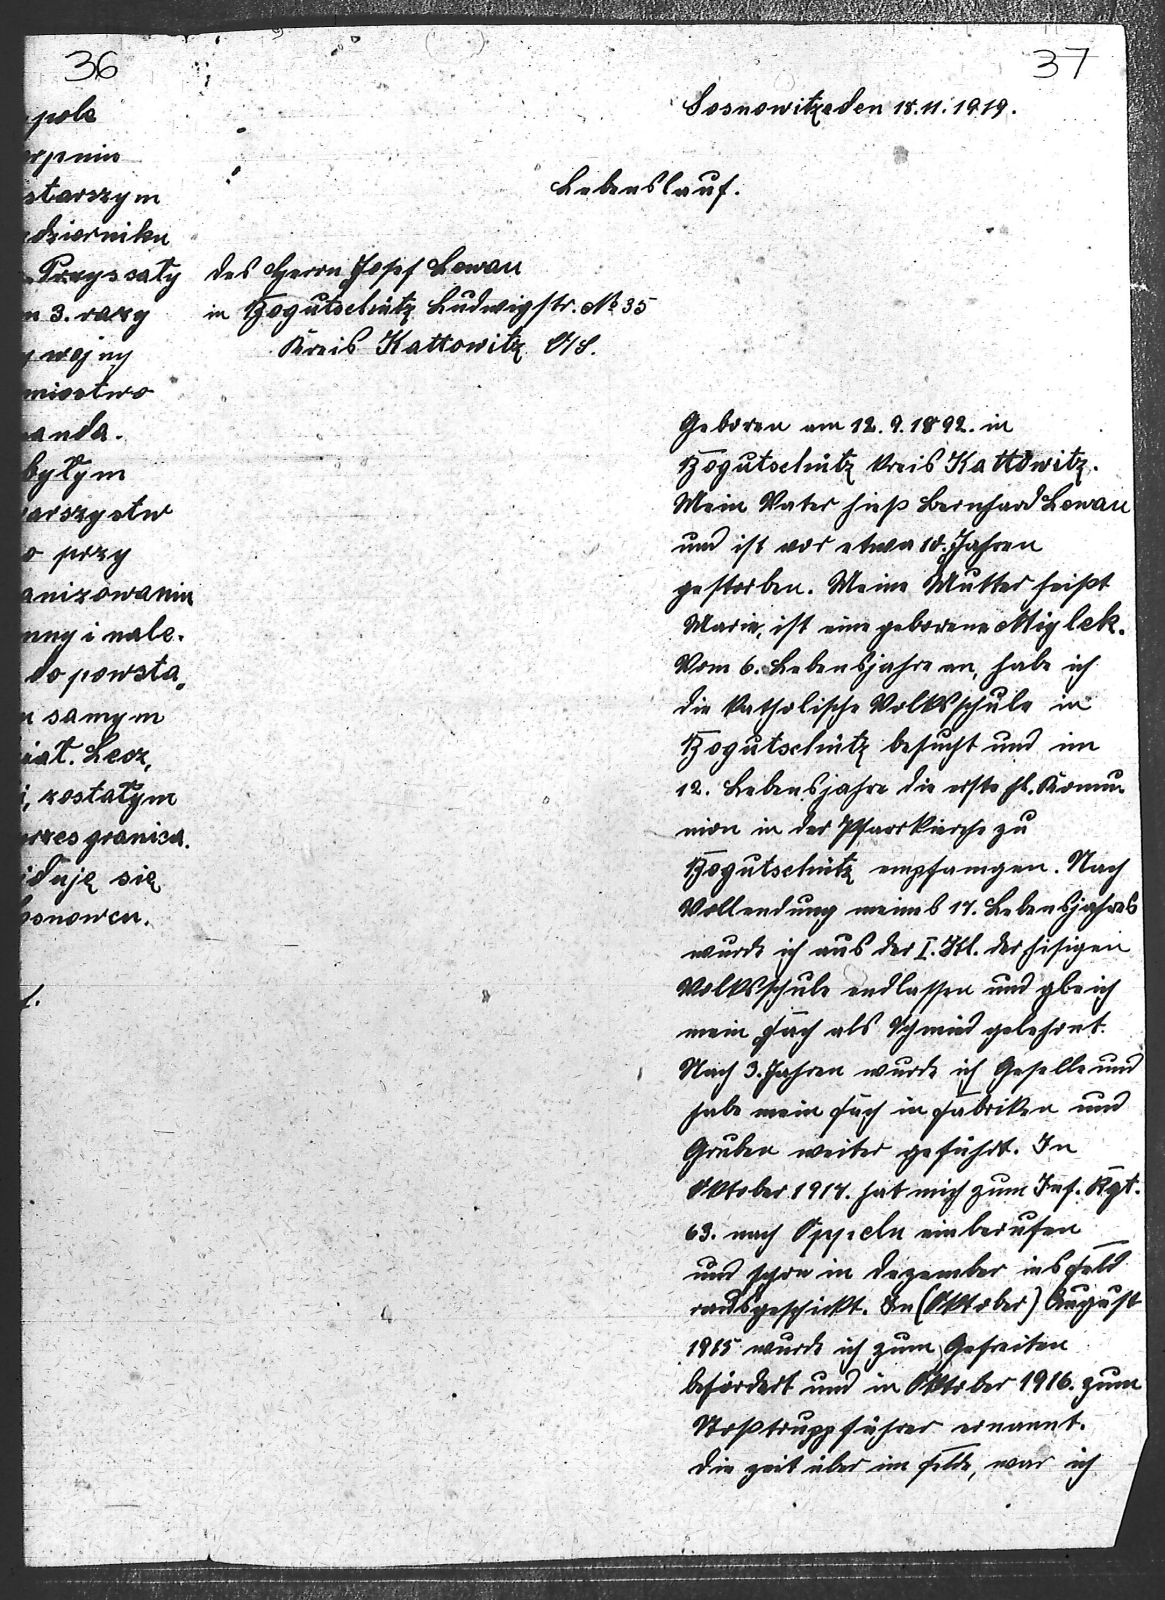 36
pole
rpnia
starszym
dzierniku
Przyssały
n 3. razy
wojny
mieetwo
anda.
byłym
arszyetw
o przy
anizowaniu
nny i nale-
do powsta„
samym
iat. Lecz,
zostałym
przes granica.
iduję się
osnowcu.
37
Sosnowitze den 18.11.1919.
Lebenslauf.
des Herrn Josef Lewan
in Bogutschütz Ludwigstr. No 35
Kreis Kattowitz O/S.
Geboren am 12.9.1892. in
Bogutschütz Kreis Kattowitz.
Mein Vater hieß Bernhard Lewan
und ist vor etwa 10. Jahren
gestorben. Meine Mutter heißt
Marie, ist eine geborene Miglek.
Vom 6. Lebensjahre an, habe ich
die katholische Volksschule in
Bogutschütz besucht und im
12. Lebensjahre die erste hl. Komu-
nion in der Pfarrkirche zu
Bogutschütz empfangen. Nach
Vollendung meines 14. Lebensjahres
wurde ich aus der I. Kl. der hisigen
Volksschule endlassen und gleich
mein Fach als Schmied gelehrnt.
Nach 3. Jahren wurde ich Geselle und
habe mein Fach in Fabriken und
Gruben weiter geführt. In
Oktober 1914. hat mich zum Inf. Rgt.
63. nach Oppeln einberufen
und schon in Dezember ins Feld
rausgeschickt. In (Oktober) August
1915 wurde ich zum Gefreiten
befördert und in Oktober 1916. zum
Stoßtruppführer ernannt.
Die zeit über im Felde, war ich